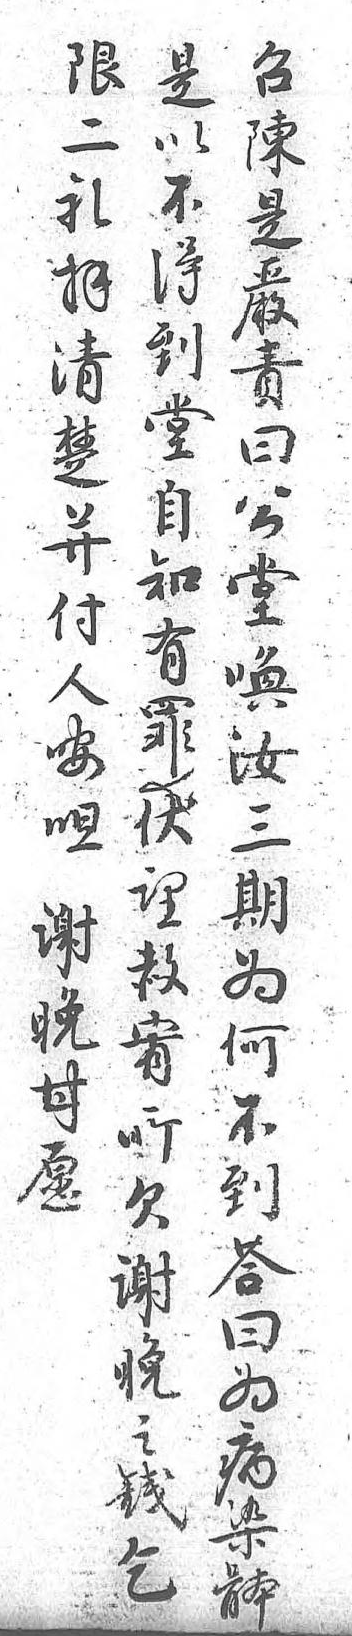 召陳是嚴責曰公堂喚汝三期为何不到荅曰为病染軆
是以不得到堂自知有罪伏望赦宥所欠谢晚之銭乞
限二礼拜清楚并付人安呾谢晚甘愿